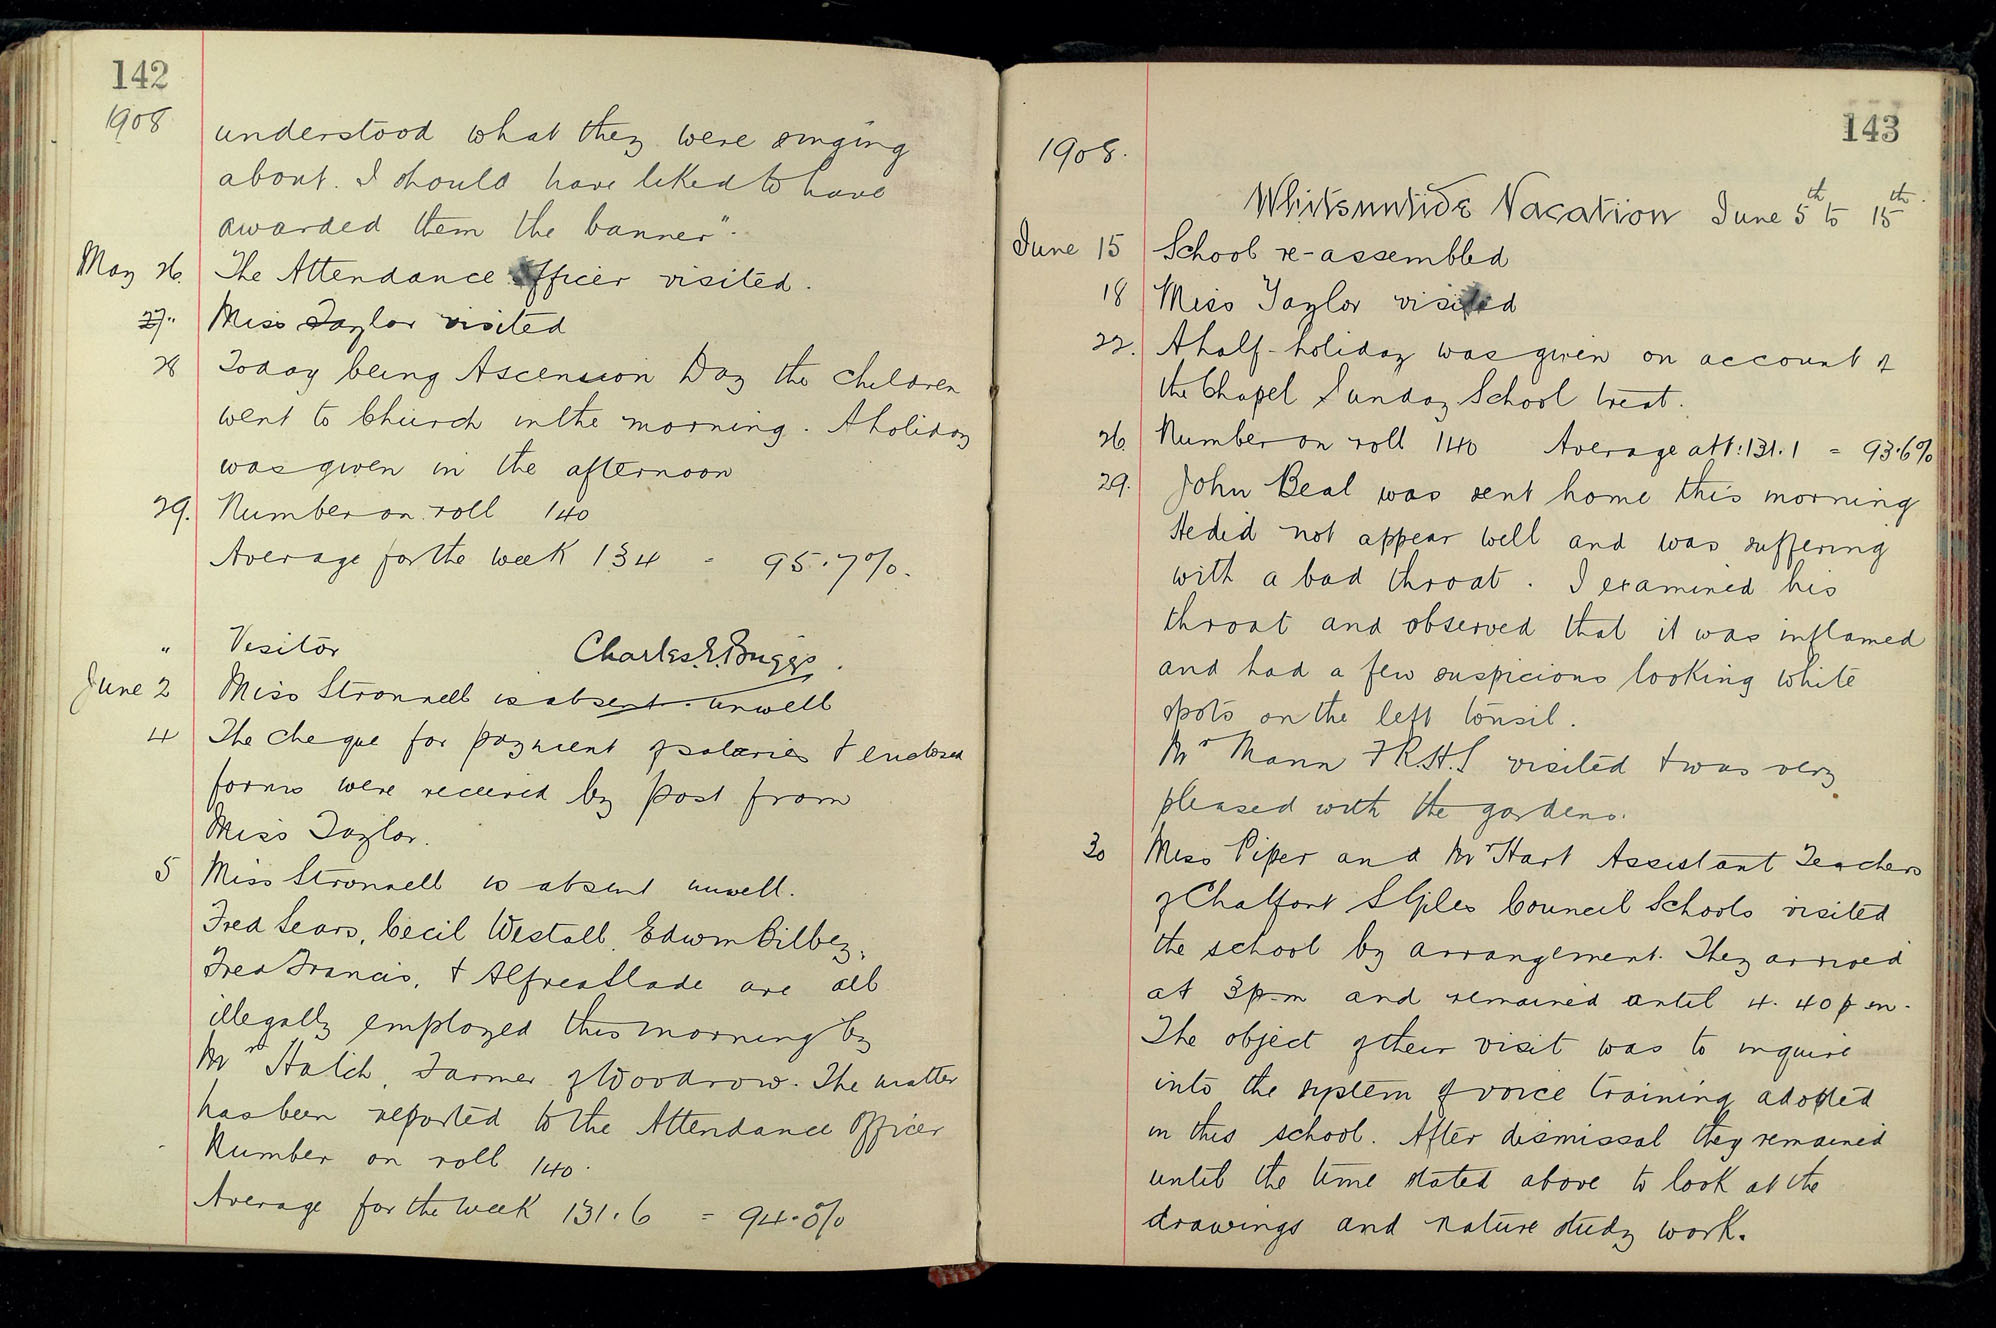 142
1908
understood what they were singing
about. I should have liked to have
awarded them the banner".
May 26. The Attendance Officer visited.
27. Miss Taylor visited
28 Today being Ascension Day the children
went to Church in the morning. A holiday
was given in the afternoon
29. Number on roll 140
Average for the week 134 = 95.7%.
" Visitor Charles E. Buggs.
June 2 Miss Stronnell is absent. unwell
4 The cheque for payment of salaries & enclosed
forms were received by post from
Miss Taylor.
5 Miss Stronnell is absent unwell.
Fred Sears, Cecil Westall, Edwin Bilbey,
Fred Francis, & Alfred Slade are all
illegally employed this morning by
Mr Hatch, Farmer of Woodrow. The matter
has been reported to the Attendance Officer
Number on roll 140.
Average for the week 131.6 = 94.0%
143
1908.
Whitsuntide Vacation June 5th to 15th.
June 15 School re-assembled
18 Miss Taylor visited
22. A half-holiday was given on account of
the Chapel Sunday School treat.
26. Number on roll 140 Average att: 131.1 = 93.6%
29. John Beal was sent home this morning
He did not appear well and was suffering
with a bad throat. I examined his
throat and observed that it was inflamed
and had a few suspicious looking white
spots on the left tonsil.
Mr Mann F.R.H.S visited & was very
pleased with the gardens.
30 Miss Piper and Mr Hart Assistant Teachers
of Chalfont S Giles Council Schools visited
the school by arrangement. They arrived
at 3 p.m and remained until 4.40 p.m.
The object of their visit was to inquire
into the system of voice training adopted
in this school. After dismissal they remained
until the time stated above to look at the
drawings and nature study work.